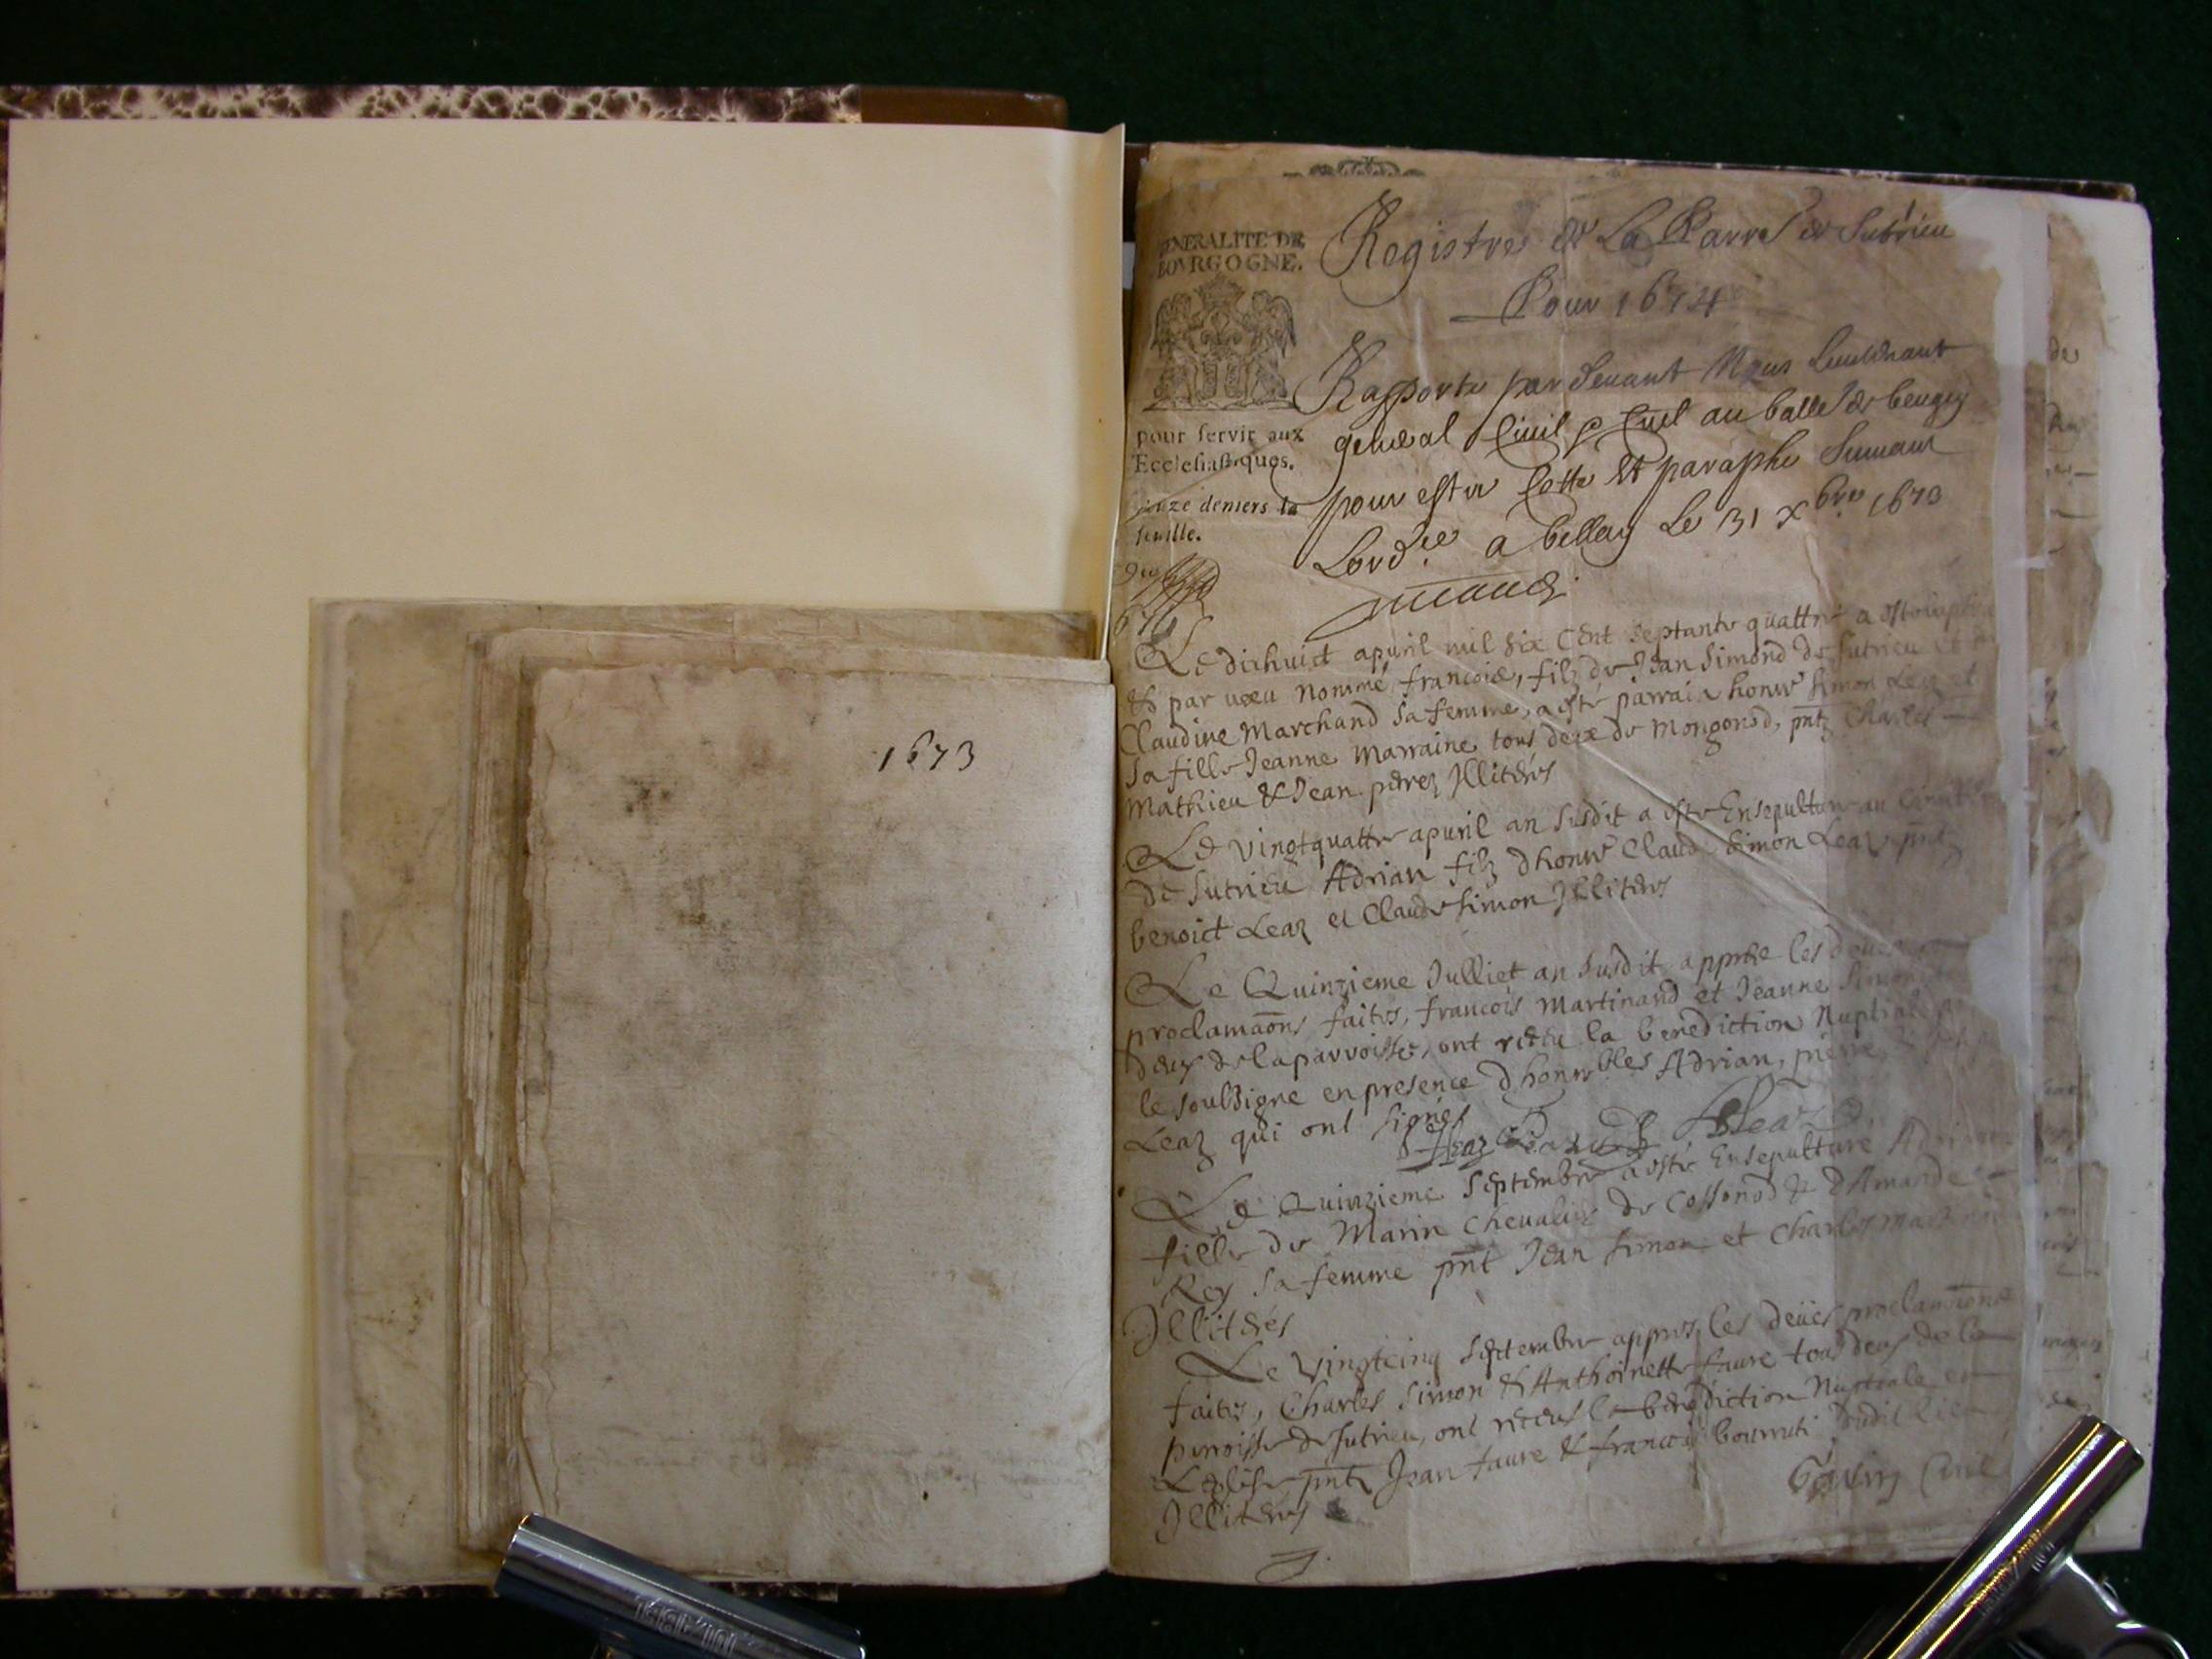 1673
GENERALITE DE
BOVRGOGNE.
pour servir aux
Ecclesiastiques.
deniers la
feuille.
Registre de La Parr de Sutrieu
Pour 1674
Rapporte par devant Nous Lieutenant
general Civil & au balle de beugey
pour estre Cotte Et paraphe Suivant
Lord.ce a bellay Le 31 xbre 1673
Le dixhuict apuril mil six Cent septante quattre a este
& par nommé francois, filz de Jean Simond de Sutrieu et
Claudine Marchand sa femme, a esté parrain honnê Simon Leaz et
sa fille Jeanne Marraine tous deux de Mongonod, pntz Charles
Mathieu & Jean perez Illiterés
Le vingtquattre apuril an susdit a esté Ensepulturé au
de Sutrieu Adrian filz dhonnê Claude Simon Leaz pnt
benoict Leaz et Claude Simon Illiterés
Le Quinzieme Julliet an susdit apprés les deües
proclamaõns faites, francois Martinand et Jeanne Simon
deux de la parroisse, ont receu la benediction Nuptiale
le soubsigne en presence dhonnrbles Adrian, pierre
Leaz qui ont signés
Leaz Leaz
Le Quinzieme Septembre a esté Ensepulturé
fille de Marin Chevalier de Cossonod & dAmande
Rey sa femme pnt Jean Simon et Charles
Illiterés
Le Vingtcinq Septembre apprés les deües proclamaõns
faites, Charles Simon & Anthoinette faure tous deux de la
parroisse de Sutrieu, ont receus la benediction Nuptiale en
Leglise pntz Jean faure & francois dudit lieu
Illiterés